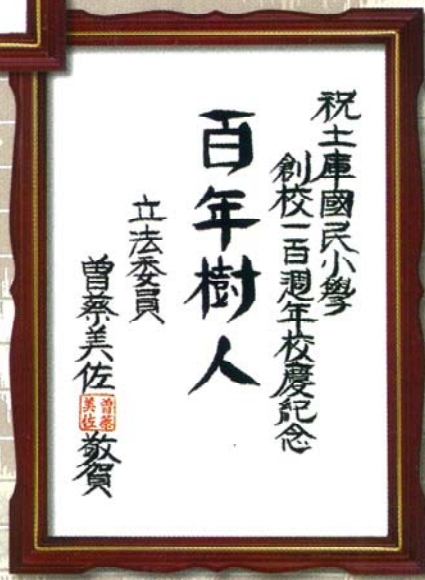 祝土庫國民小學
創校一百週年校慶紀念
百年樹人
立法委員
曾蔡美佐 曾蔡美佐 敬賀